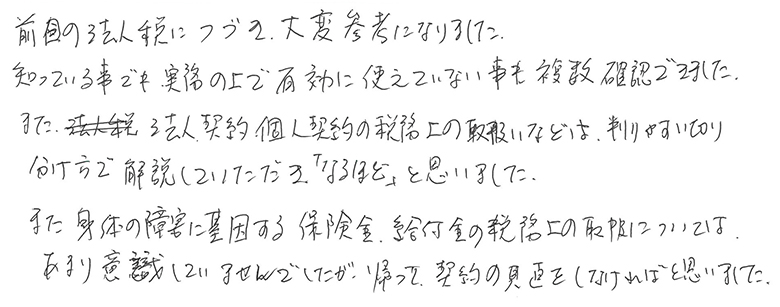 前回の法人税につづき、大変参考になりました。
知っている事でも実務の上で有効に使えていない事も複数確認できました。
また、法人税 法人契約個人契約の税務上の取扱いなどは、判りやすい切り
分け方で解説していただき、「なるほど」と思いました。
また身体の障害に基因する保険金、給付金の税務上の取扱については、
あまり意識していませんでしたが、帰って、契約の見直をしなければと思いました。